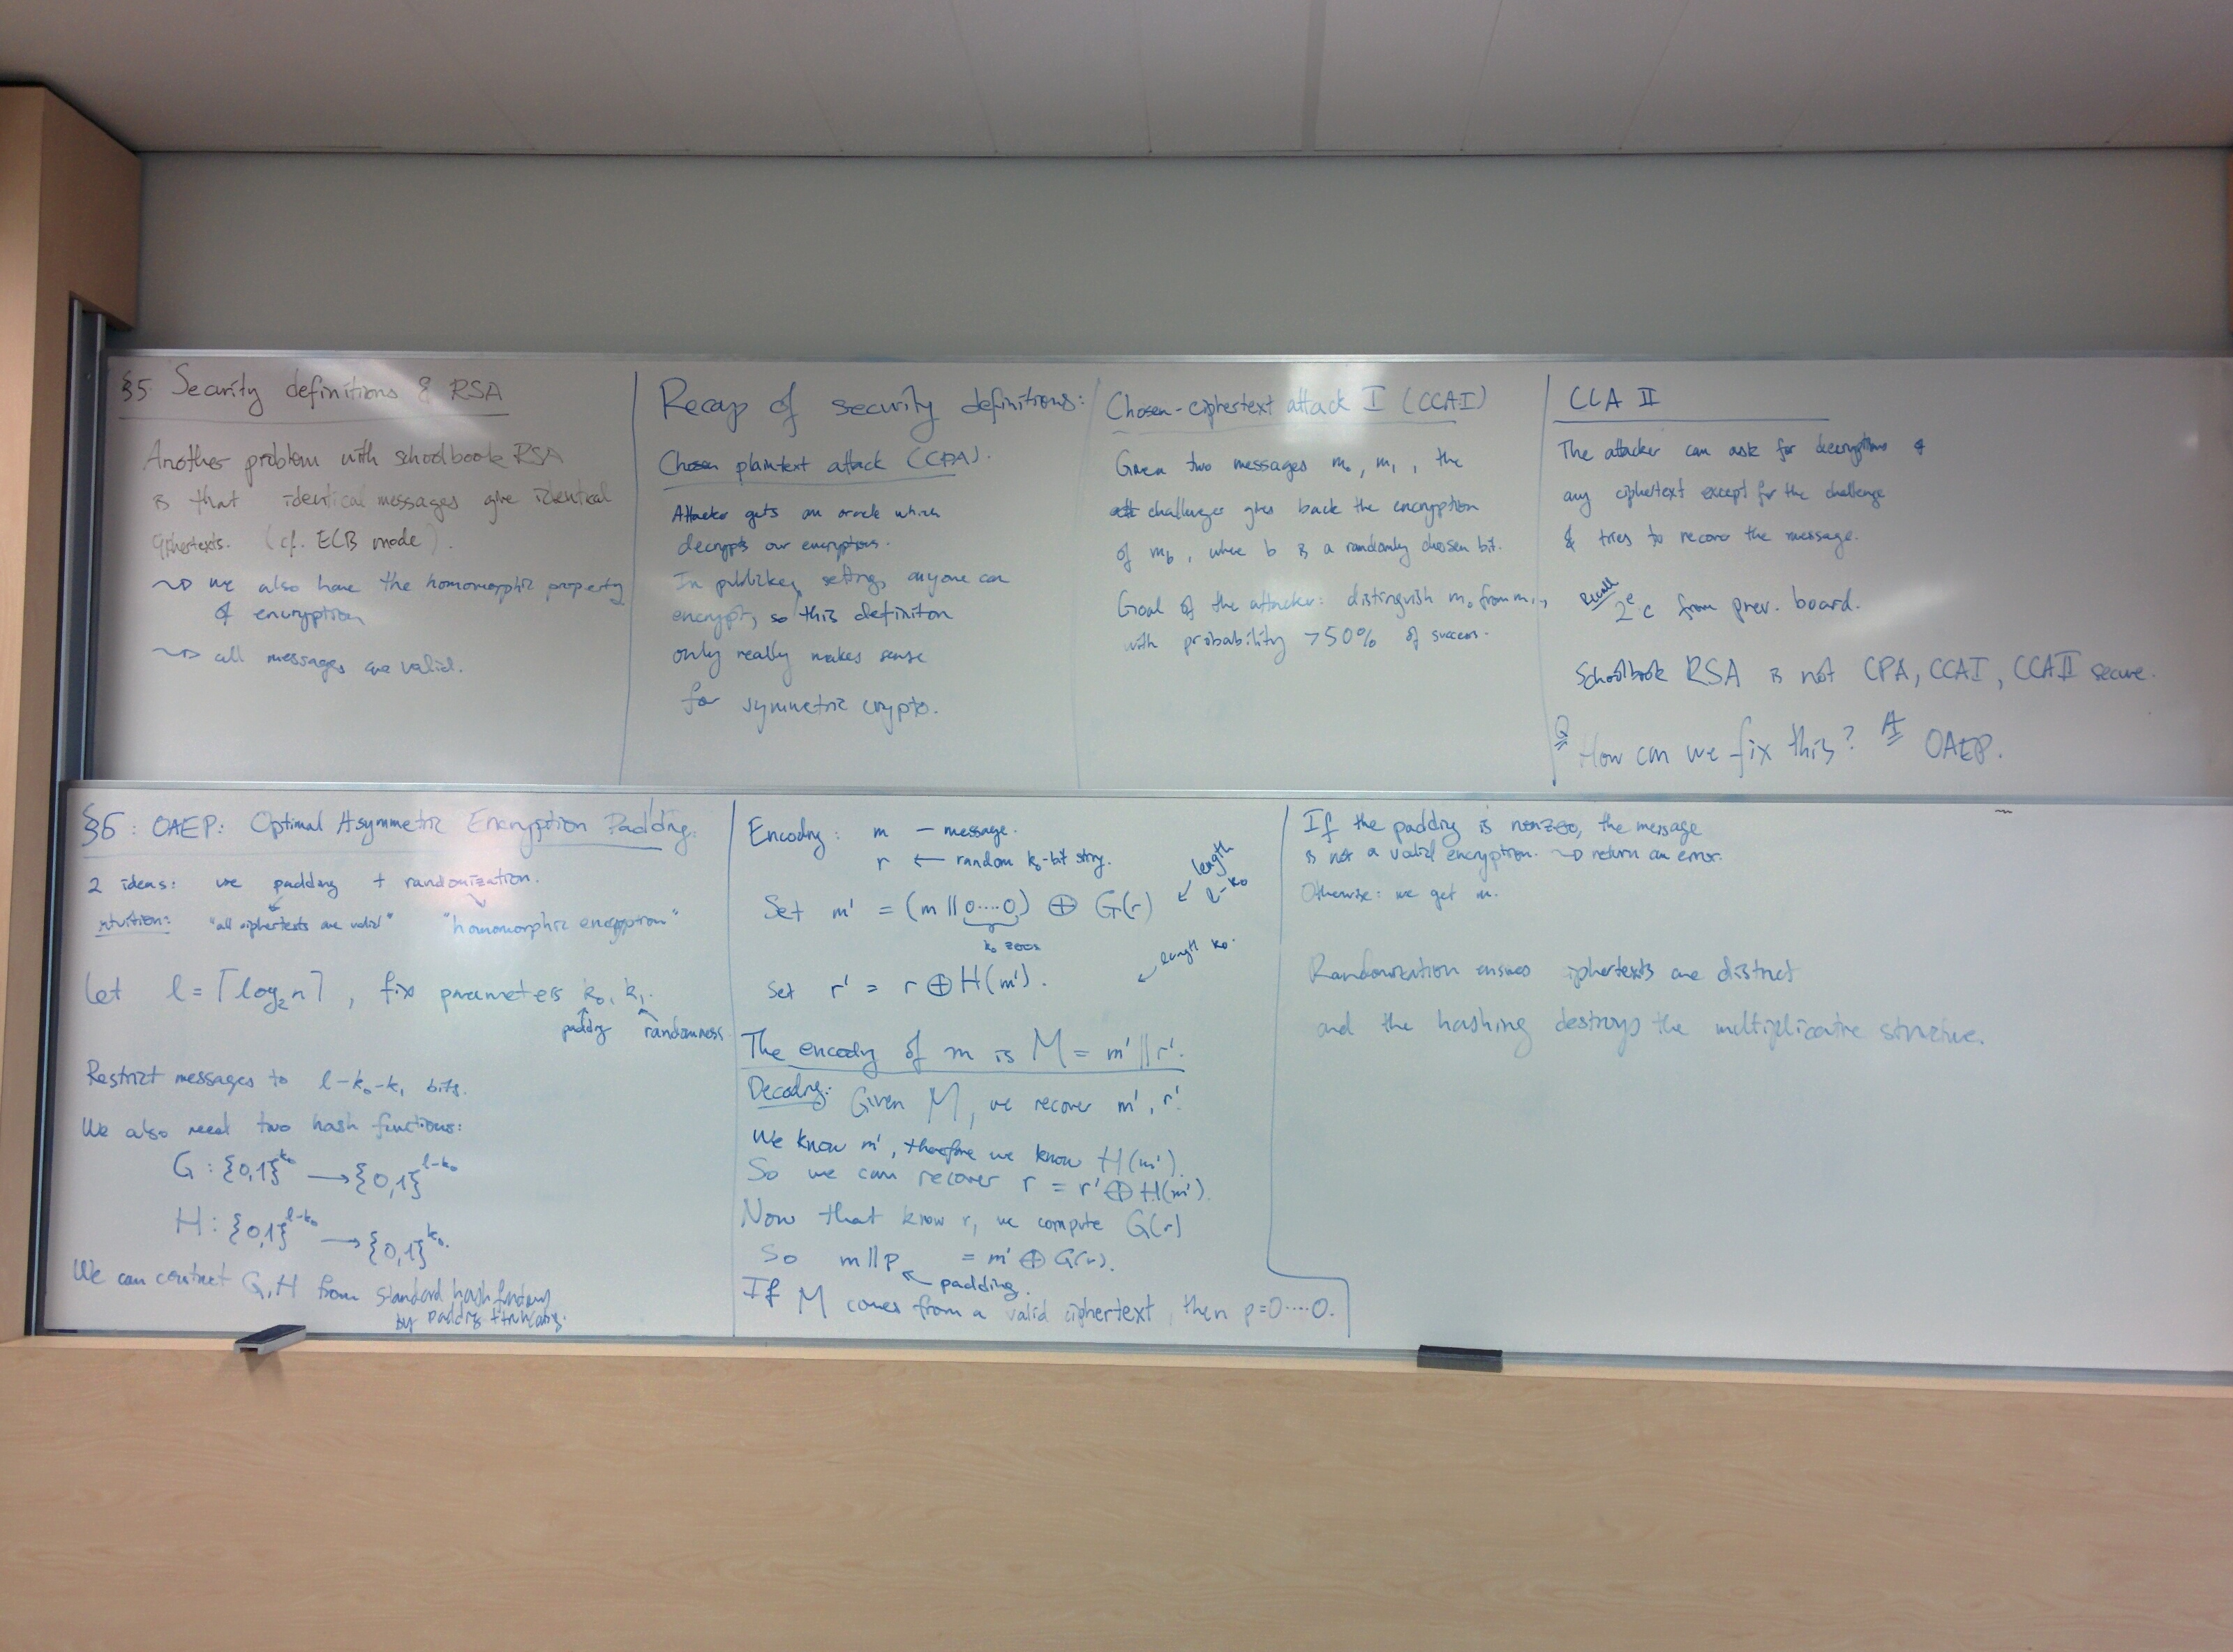 §5. Security definitions & RSA
Another problem with schoolbook RSA
is that identical messages give identical
ciphertexts. (cf. ECB mode).
⇝ we also have the homomorphic property
of encryption
⇝ all messages are valid.
Recap of security definitions:
Chosen plaintext attack (CPA).
Attacker gets an oracle which
decrypts our encryptions.
In publickey settings anyone can
encrypt, so this definition
only really makes sense
for symmetric crypto.
Chosen-ciphertext attack I (CCAI)
Given two messages m₀, m₁, the
challenger gives back the encryption
of m_b, where b is a randomly chosen bit.
Goal of the attacker: distinguish m₀ from m₁,
with probability >50% of success.
CCA II
The attacker can ask for decryptions of
any ciphertext except for the challenge
& tries to recover the message.
Recall 2ᵉ·c from prev. board.
Schoolbook RSA is not CPA, CCAI, CCAII secure.
Q How can we fix this? A OAEP.
§6: OAEP: Optimal Asymmetric Encryption Padding.
2 ideas: use padding + randomization.
intuition: "all ciphertexts are valid" "homomorphic encryption"
Let l = ⌈log₂n⌉, fix parameters k₀, k₁.
padding randomness
Restrict messages to l-k₀-k₁ bits.
We also need two hash functions:
G: {0,1}^k₀ → {0,1}^l-k₀
H: {0,1}^l-k₀ → {0,1}^k₀.
We can contruct G, H from standard hash functions
by padding + truncating.
Encoding: m — message.
r ← random k₀-bit string.
Set m' = (m || 0....0) ⊕ G(r) ↙ length l-k₀
k₀ zeros
Set r' = r ⊕ H(m'). ↙ length k₀.
The encoding of m is M = m' || r'.
Decoding: Given M, we recover m', r'.
We know m', therefore we know H(m').
So we can recover r = r' ⊕ H(m').
Now that know r, we compute G(r)
So m || p = m' ⊕ G(r).
↖ padding.
If M comes from a valid ciphertext, then p=0....0.
If the padding is nonzero, the message
is not a valid encryption. ⇝ return an error.
Otherwise: we get m.
Randomization ensures ciphertexts are distinct
and the hashing destroys the multiplicative structure.